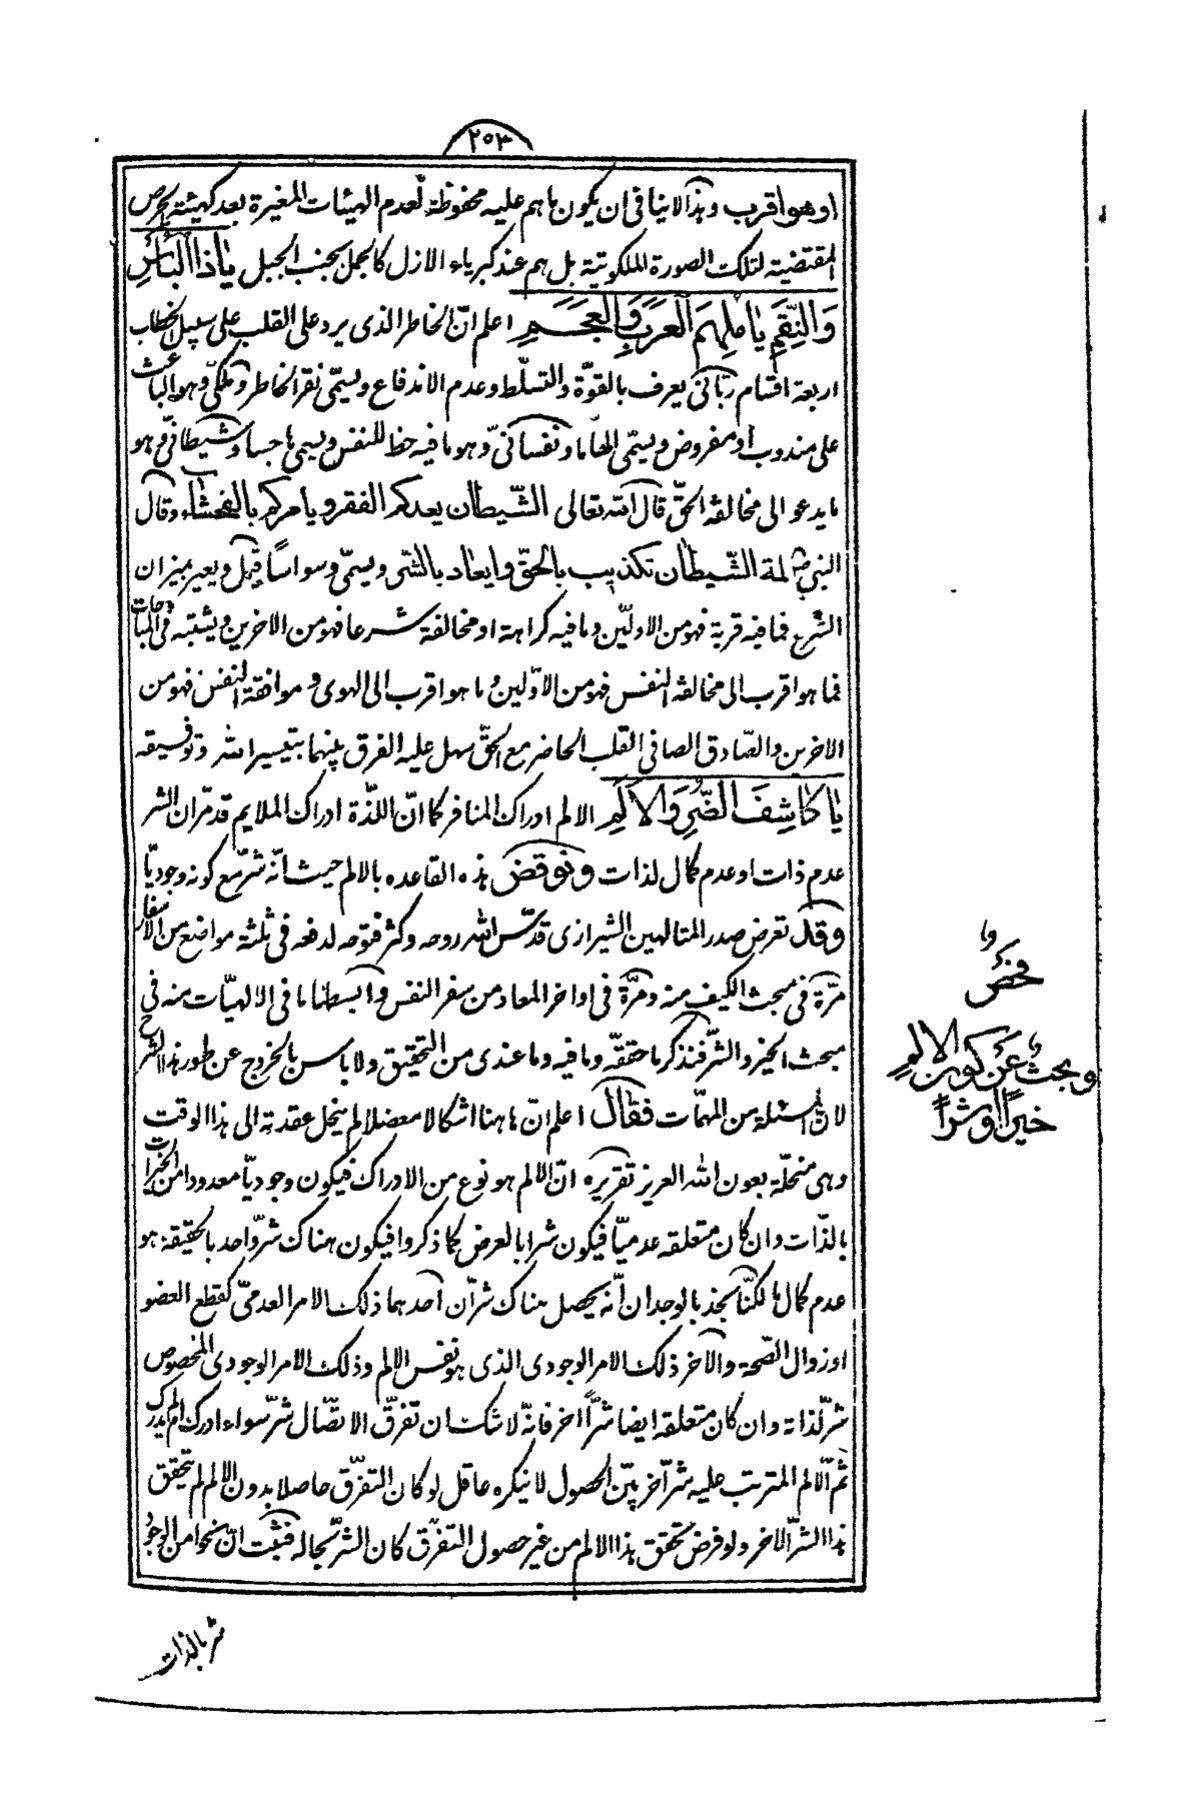 ٢٥٣
او هو اقرب وهذا لا ينافى ان يكون ما هم عليه محفوظة لعدم الهيئات المغيرة بعد كهيئة الحرص
المقتضية لتلك الصورة الملكوتية بل هم عند كبرياء الازل كالجمل بجنب الجبل يا ذا الباس
والنقم يا ملهم العرب والعجم اعلم ان الخاطر الذى يرد على القلب على سبيل الخطاب
اربعة اقسام ربانى يعرف بالقوة والتسلط وعدم الاندفاع ويسمى نقر الخاطر وملكى وهو الباعث
على مندوب او مفروض ويسمى الهاما ونفسانى وهو ما فيه حظ للنفس ويسمى هاجسا وشيطانى وهو
ما يدعو الى مخالفة الحق قال الله تعالى الشيطان يعدكم الفقر ويامركم بالفحشاء وقال
النبى ص لمة الشيطان تكذيب بالحق وايعاد بالشر ويسمى وسواسا قيل ويعير بميزان
الشرع فما فيه قربة فهو من الاولين وما فيه كراهة او مخالفة شرعا فهو من الاخرين ويشتبه فى المباحات
فما هو اقرب الى مخالفة النفس فهو من الاولين وما هو اقرب الى الهوى وموافقة النفس فهو من
الاخرين والصادق الصافى القلب الحاضر مع الحق سهل عليه الفرق بينهما بتيسير الله وتوفيقه
يا كاشف الضر والالم الالم ادراك المنافر كما ان اللذة ادراك الملايم قد مر ان الشر
عدم ذات او عدم كمال لذات ونوقض هذه القاعده بالالم حيث انه شر مع كونه وجوديا
وقد تعرض صدر المتالهين الشيرازى قدس الله روحه وكثر فتوحه لدفعه فى ثلثة مواضع من الاسفار
مرة فى مبحث الكيف منه ومرة فى اواخر المعاد من سفر النفس وابسطها ما فى الالهيات منه فى
مبحث الخير والشر فنذكر ما حققه وما فيه وما عندى من التحقيق ولا باس بالخروج عن طور هذا الشرح
لان المسئلة من المهمات فقال اعلم ان هاهنا اشكالا معضلا لم ينحل عقدته الى هذا الوقت
وهى منحلة بعون الله العزيز تقريره ان الالم هو نوع من الادراك فيكون وجوديا معدودا من الخيرات
بالذات وان كان متعلقه عدميا فيكون شرا بالعرض كما ذكروا فيكون هناك شر واحد بالحقيقة هو
عدم كمال ما لكنا نجد بالوجدان انه يحصل هناك شران احدهما ذلك الامر العدمى كقطع العضو
او زوال الصحة والاخر ذلك الامر الوجودى الذى هو نفس الالم وذلك الامر الوجودى المخصوص
شر لذاته وان كان متعلقه ايضا شرا اخر فانه لا شك ان تفرق الاتصال شر سواء ادرك ام لم يدرك
ثم الالم المترتب عليه شر آخر بين الحصول لا ينكره عاقل لو كان التفرق حاصلا بدون الالم لم يتحقق
هذا الشر الاخر ولو فرض تحقق هذا الالم من غير حصول التفرق كان الشر بحاله فثبت ان نحوا من الوجود
شر بالذات
فحص
و بحث عن كون الالم
خيرا او شرا